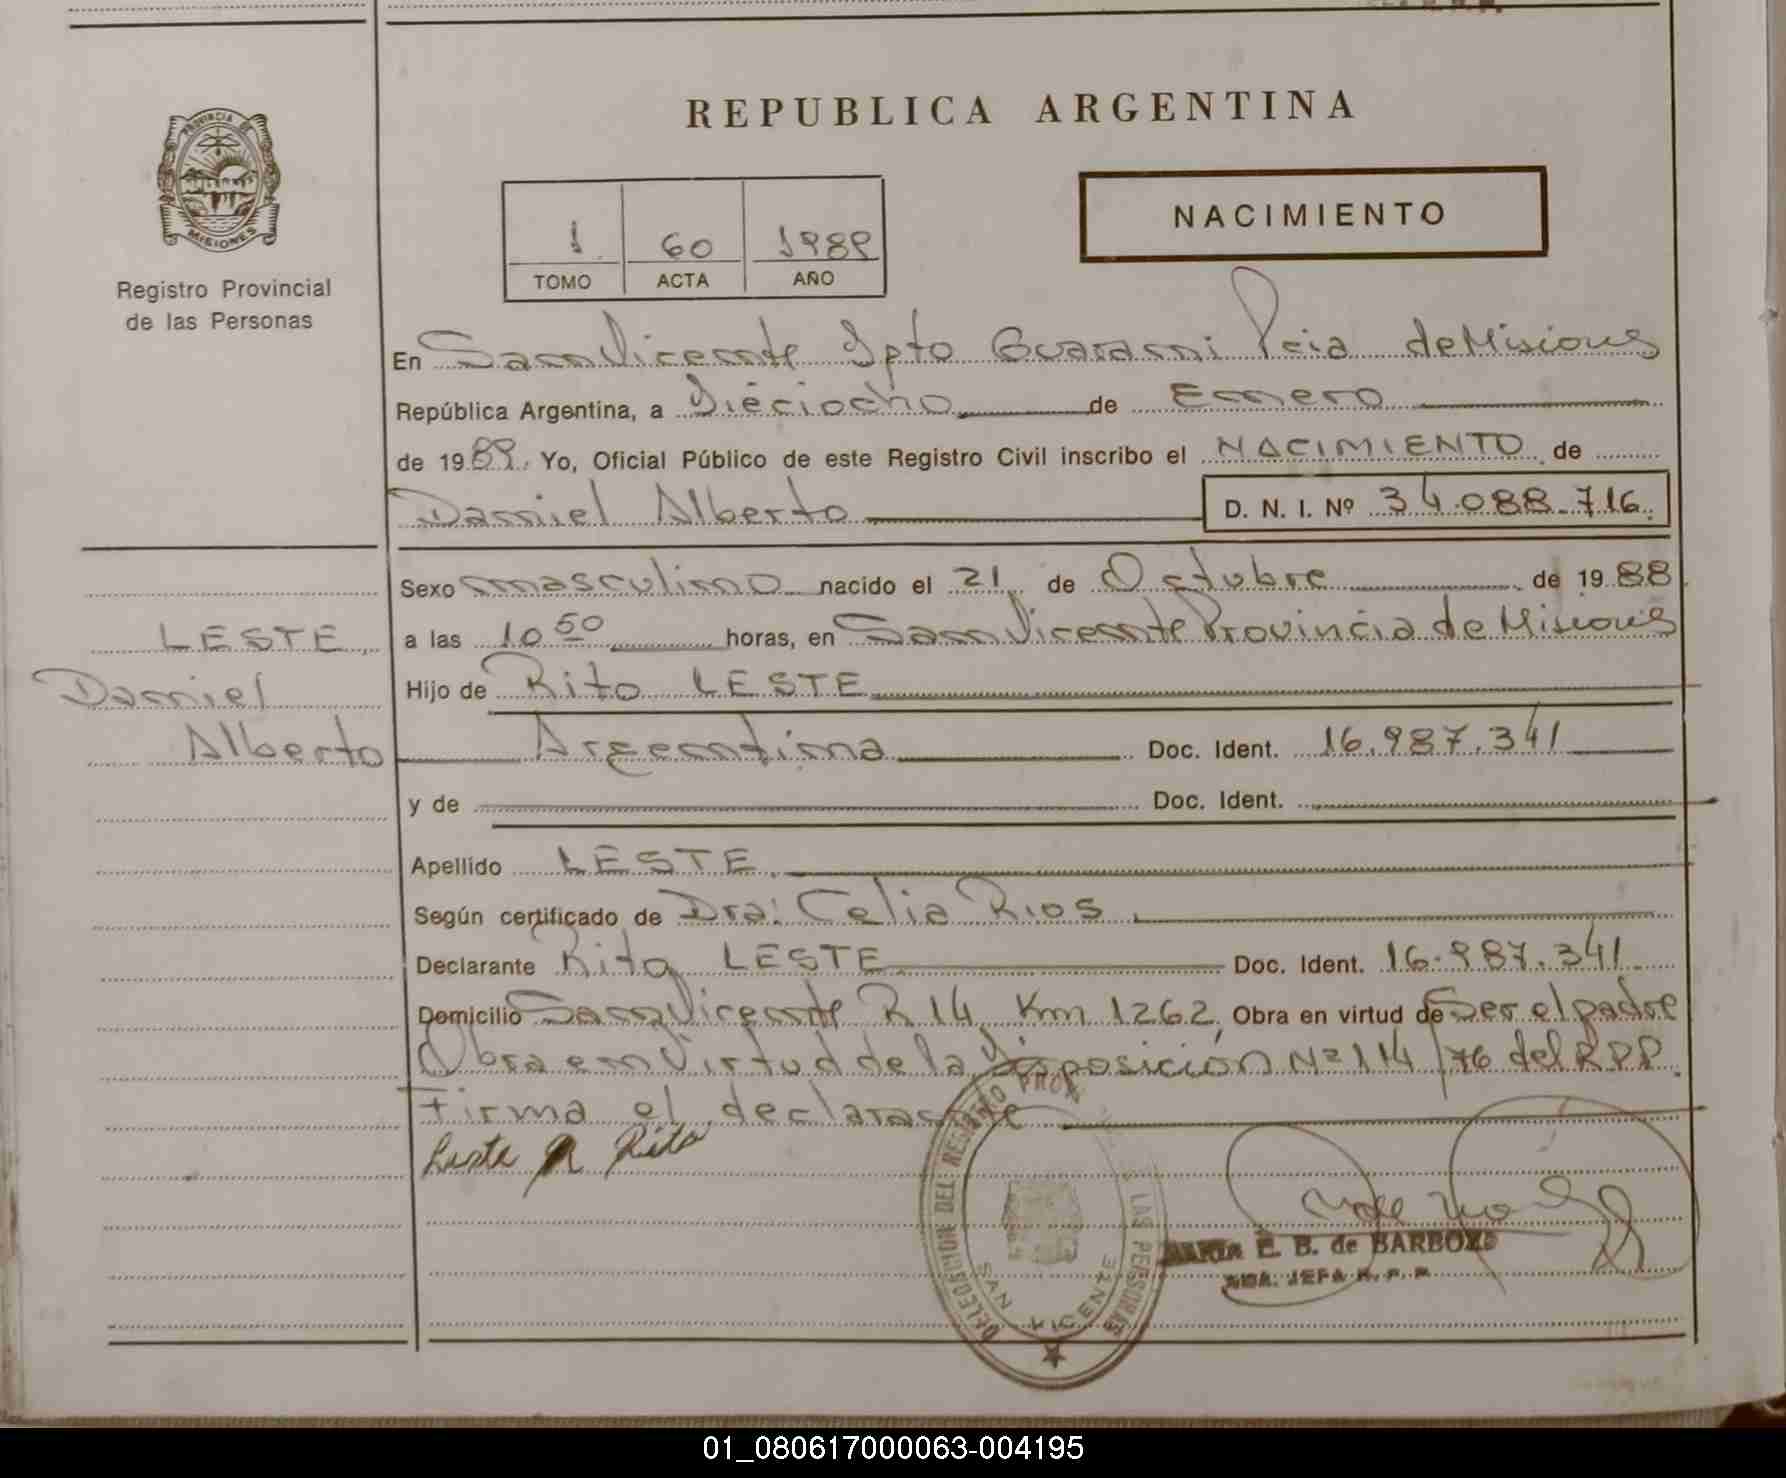 REPUBLICA ARGENTINA
PROVINCIA DE
MISIONES
Registro Provincial
de las Personas
1 60 1989
TOMO ACTA AÑO
NACIMIENTO
En San Vicente Dpto Guarani Pcia de Misiones
República Argentina, a Dieciocho de Enero
de 1989. Yo, Oficial Público de este Registro Civil inscribo el NACIMIENTO de
Daniel Alberto D. N. I. Nº 34.088.716.
Sexo masculino nacido el 21 de Octubre de 1988
LESTE
Daniel
Alberto
a las 10 50 horas, en San Vicente Provincia de Misiones
Hijo de Rito LESTE
Argentina Doc. Ident. 16.987.341
y de Doc. Ident.
Apellido LESTE.
Según certificado de Dra: Celia Rios
Declarante Rito LESTE Doc. Ident. 16.987.341.
Domicilio San Vicente R 14 Km 1262 Obra en virtud de Ser el padre
Obra en Virtud de la Disposición Nº 114/76 del R P P.
Firma el declarante
Leste R Rito
DELEGACION DEL REGISTRO PROV LAS PERSONAS
SAN VICENTE
MARIA E. B. de BARBOZA
JEFA R. P. P.
01_080617000063-004195